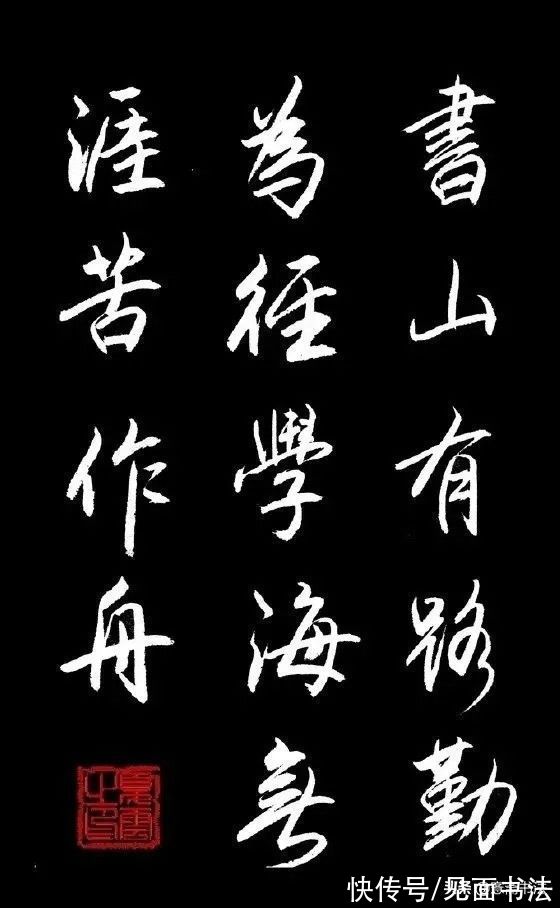 書山有路勤
為徑學海無
涯苦作舟
快传号/见面书法